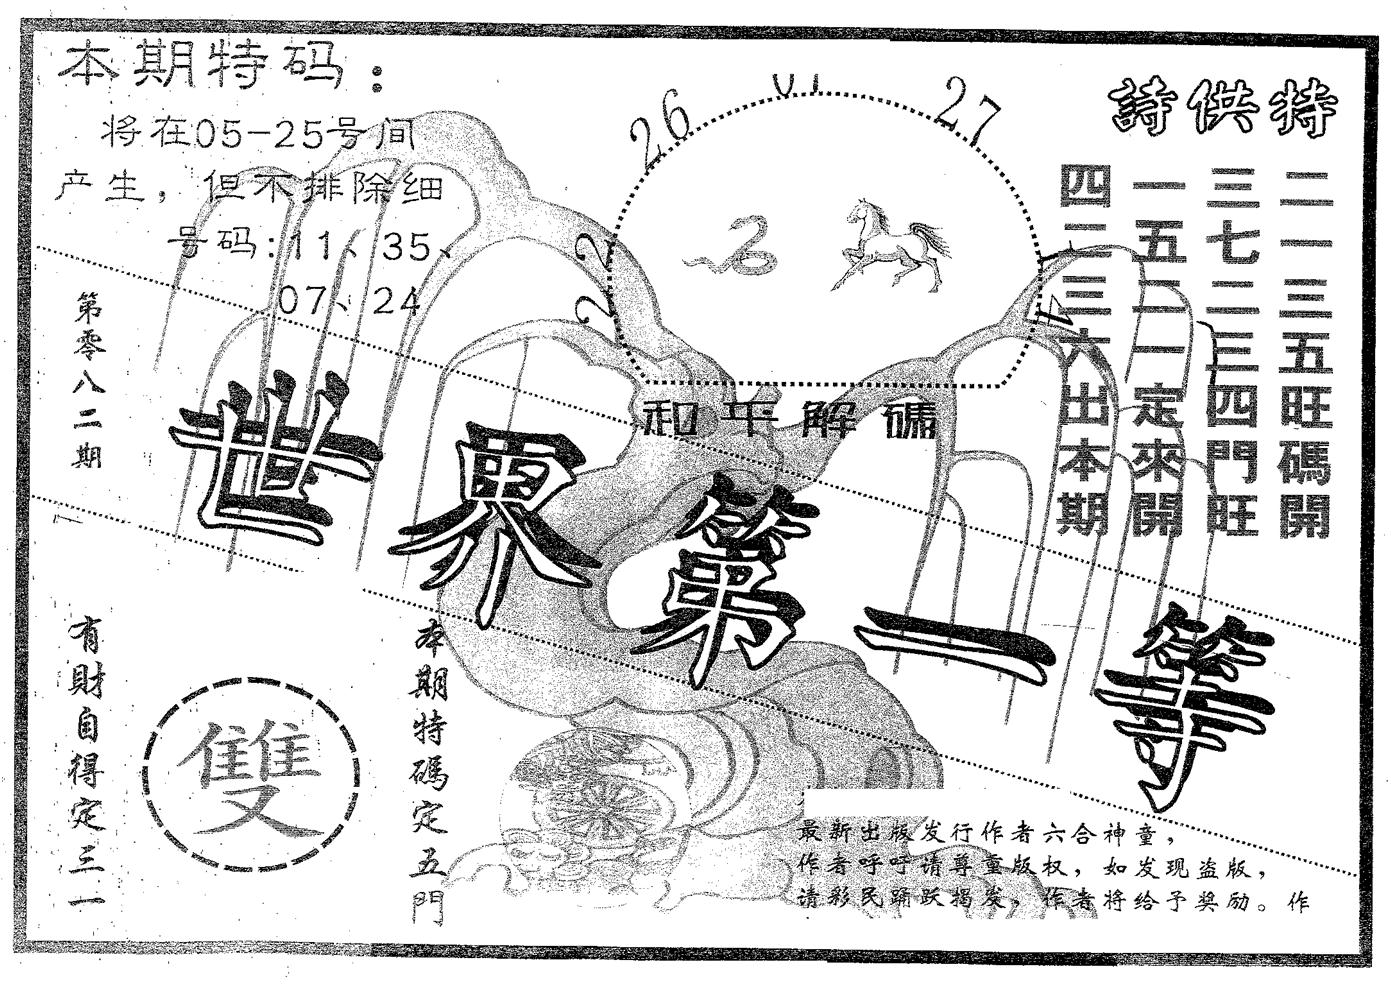 本期特码：
将在05-25号间
产生，但不排除细
号码:11、35、
07、24
26
27
22
詩供特
二一三五旺碼開
三七二三四門旺
一五二一定來開
四二三六出本期
和平解碼
第零八二期
世界第一等
有財自得定三一
雙
本期特碼定五門
最新出版发行作者六合神童，
作者呼吁请尊重版权，如发现盗版，
请彩民踊跃揭发，作者将给予奖励。作